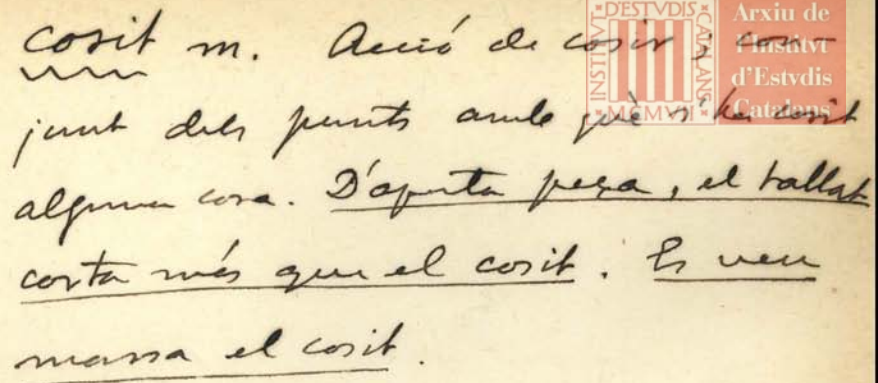 cosit m. Acció de cosir i con-
junt dels punts amb què s'ha cosit
alguna cosa. D'aquesta peça, el tallat
costa més que el cosit. Es veu
massa el cosit.
INSTITVT D'ESTVDIS CATALANS MCMVII
Arxiu de
l'Institvt
d'Estvdis
Catalans